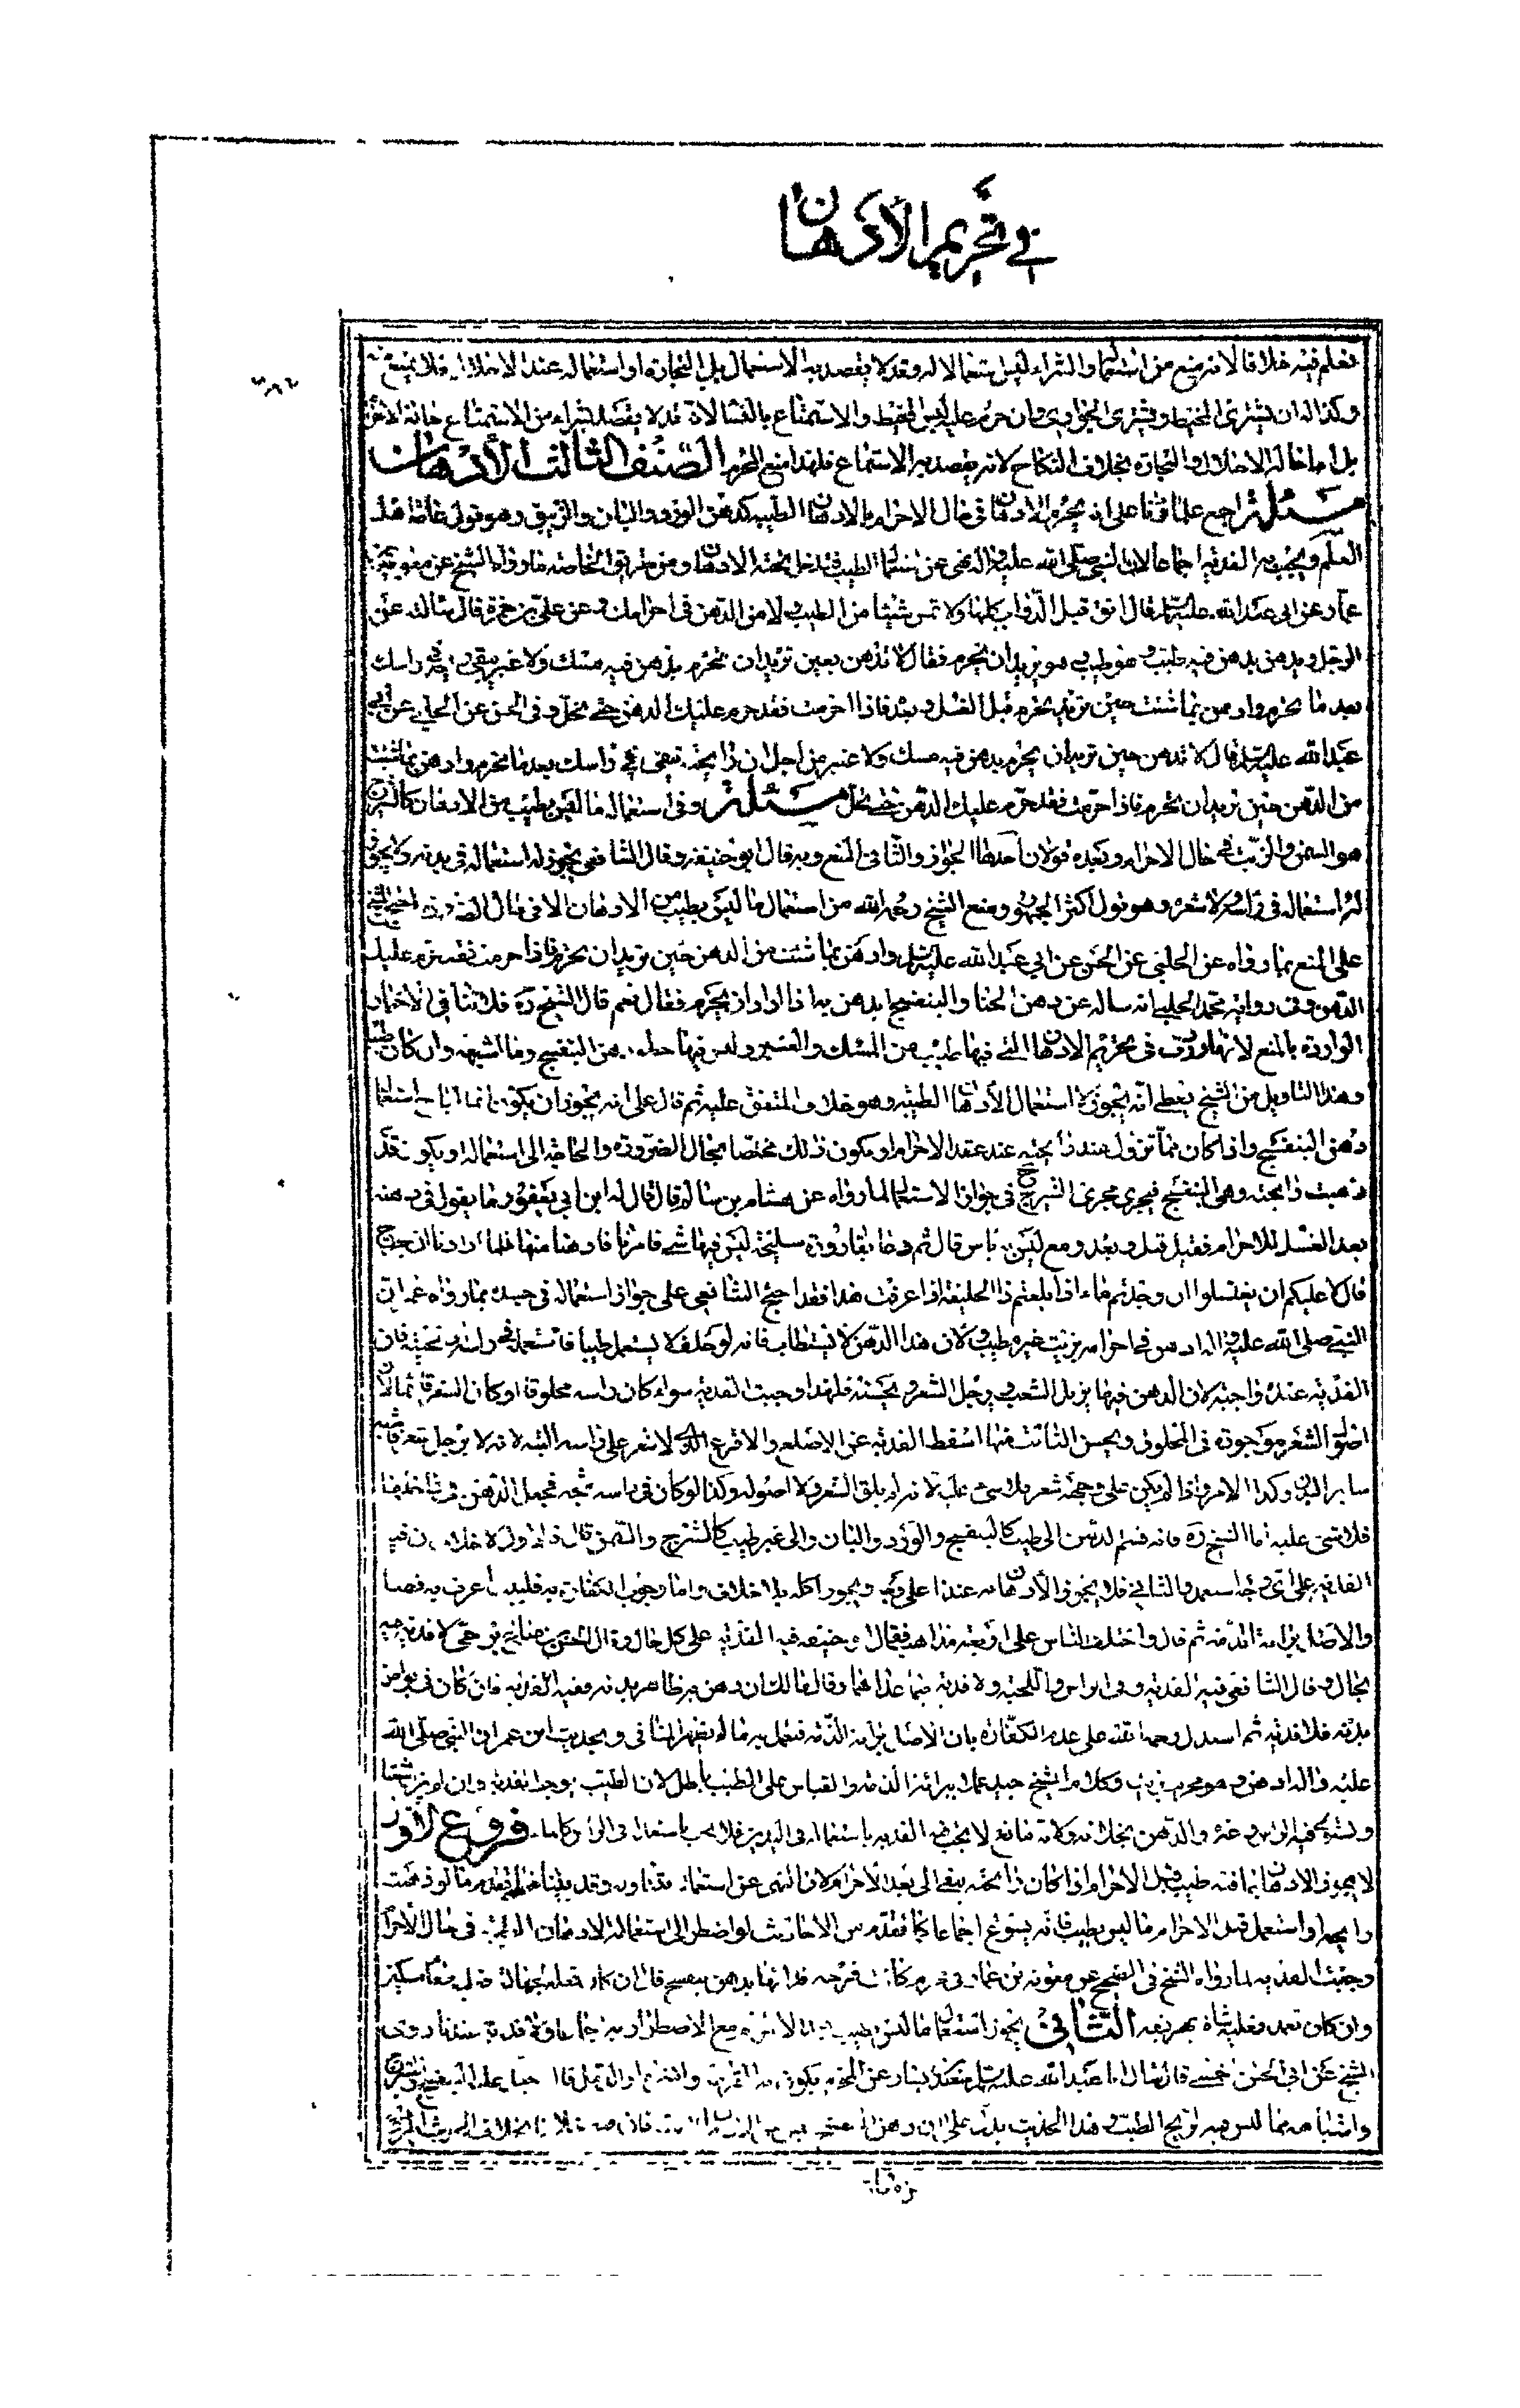 في تحريم الادهان
نعلم فيه خلافا لانه منع من استعماله والشراء ليس استعمالا له وقد لا يقصد به الاستعمال بل التجارة او استعماله عند الاحلال فلا يمنع منه
وكذا له ان يشترى المخيط ويشترى الجوارى وان حرم عليه لبس المخيط والاستمتاع بالنساء لانه قد لا يقصد بشراءه من الاستمتاع حالة الاحرام
بل اما حالة الاحلال او التجارة بخلاف النكاح لانه يقصد به الاستمتاع فلهذا منع المحرم الصنف الثالث الادهان
مسئلة اجمع علماؤنا على انه يحرم الادهان في حال الاحرام بالادهان الطيبة كدهن الورد والبان والزيبق وهو قول عامة اهل
العلم ويجب به الفدية اجماعا لان النبي صلى الله عليه واله نهى عن استعمال الطيب فيدخل تحته الادهان ومن طريق الخاصة ما رواه الشيخ عن معوية بن
عمار عن ابي عبد الله عليه السلام قال اتق قتل الدواب كلها ولا تمس شيئا من الطيب ولا من الدهن في احرامك وعن علي بن حمزة قال سالته عن
الرجل يدهن بدهن فيه طيب وهو يريد ان يحرم فقال لا تدهن حين تريد ان تحرم بدهن فيه مسك ولا عنبر يبقى ريحه في راسك
بعد ما تحرم وادهن بما شئت حين تريد تحرم قبل الغسل وبعده فاذا احرمت فقد حرم عليك الدهن حتى تحل وفي الحسن عن الحلبي عن ابي
عبد الله عليه السلام قال لا تدهن حين تريد ان تحرم بدهن فيه مسك ولا عنبر من اجل ان رايحته تبقى في راسك بعد ما تحرم وادهن بما شئت
من الدهن حين تريد ان تحرم فاذا احرمت فقد حرم عليك الدهن حتى تحل مسئلة وفي استعمال ما ليس بطيب من الادهان كالشيرج
هو السمن والزيت في حال الاحرام وبعده قولان احدهما الجواز والثاني المنع وبه قال ابو حنيفة وقال الشافعي يجوز له استعماله في بدنه ولا يجوز
له استعماله في راسه ولا شعره وهو قول اكثر الجمهور ومنع الشيخ رحمه الله من استعمال ما ليس بطيب من الادهان الا في حال الضرورة احتج الشيخ
على المنع بما رواه عن الحلبي عن الحسن عن ابي عبد الله عليه السلام وادهن بما شئت من الدهن حين تريد ان تحرم فاذا احرمت فقد حرم عليك
الدهن وفي رواية محمد الحلبي انه ساله عن دهن الحنا والبنفسج ايدهن به اذا اراد ان يحرم فقال نعم قال الشيخ ره فلا تنافي الاخبار
الواردة بالمنع لانها وردت في تحريم الادهان التي فيها طيب من المسك والعنبر وليس فيها دهن البنفسج وما اشبهه وان كان طيبا
وهذا التاويل من الشيخ يعطي انه يجوز استعمال الادهان الطيبة وهو خلاف المتفق عليه ثم قال على انه يجوز ان يكون انما اباح استعمال
دهن البنفسج واذا كان مما تزول عنه رايحته عند عقد الاحرام او يكون ذلك مختصا بحال الضرورة والحاجة الى استعماله او يكون قد
ذهبت رايحته وهى البنفسج فيجرى مجرى الشيرج في جواز الاستعمال لما رواه عن هشام بن سالم قال قال له ابن ابي يعفور ما يقول في دهنه
بعد الغسل للاحرام فقيل قبل وبعد ومع ليس به باس قال ثم دعا بقارورة سليخة ليس فيها شيء فامرنا فادهنا منها فلما اردنا ان نخرج
قال لا عليكم ان تغتسلوا ان وجدتم ماء اذا بلغتم ذا الحليفة اذا عرفت هذا فقد احتج الشافعي على جواز استعماله في جسده بما رواه عمر ان
النبي صلى الله عليه واله ادهن في احرامه بزيت غير مطيب ولان هذا الدهن لا يستطاب فانه لو حلف لا يستعمل طيبا فاستعمله في راسه ولحيته فان
الفدية عنده واجبة لان الدهن فيها يزيل الشعث ويرجل الشعر ويحسنه فلهذا وجبت الفدية سواء كان راسه محلوقا او كان الشعر قائما لان
اصول الشعر موجودة في المحلوق ويحسن النابت منها اسقط الفدية عن الاصلع والاقرع الذى لا شعر على راسه البتة لانه لا يرجل شعرا فاشبه
ساير البدن وكذا الامرد اذا لم يكن على وجهه شعر فلا شيء عليه لانه لم يلق الشعر ولا اصوله وكذا لو كان في راسه شجة فجعل الدهن في داخلها
فلا شيء عليه اما الشيخ ره فانه قسم الدهن الى طيب كالبنفسج والورد والبان والى غير طيب كالشيرج والسمن قال
والاصل براءة الذمة ثم قال واختلف الناس على اربعة مذاهب فقال ابو حنيفة فيه الفدية على كل حال وقال الحسن بن صالح بن حى لا فدية فيه
بحال وقال الشافعي فيه الفدية وفي الراس واللحية ولا فدية فيما عداهما وقال مالك ان دهن به ظاهر بدنه ففيه الفدية فان كان في بواطن
بدنه فلا فدية ثم استدل رحمه الله على عدم الكفارة بان الاصل براءة الذمة فيعمل به ما لم يظهر المنافي وبحديث ابن عمر ان النبي صلى الله
عليه واله ادهن وهو محرم بزيت وكلام الشيخ جيد عملا ببراءة الذمة والقياس على الطيب باطل لان الطيب يوجب الفدية وان لم يزل شعثا
ويستوى فيه الراس وغيره والدهن بخلافه ولانه مايع لا يجب فيه الفدية باستعماله في اليدين فلا يجب باستعماله في الراس كالماء فروع الاول
لا يجوز الادهان بما فيه طيب قبل الاحرام اذا كان رايحته يبقى الى بعد الاحرام لان النهى عن استعماله يتناوله وقد بينا فيما تقدم ما لو ذهبت
رايحته او استعمل قبل الاحرام ما ليس بطيب فانه يسوغ اجماعا لما تقدم من الاحاديث لو اضطر الى استعمال الادهان الطيبة في حال الاحرام
وجبت الفدية لما رواه الشيخ في الصحيح عن معوية بن عمار في محرم كانت به قرحة فداواها بدهن بنفسج قال ان كان فعله بجهالة فعليه طعام مسكين
وان كان تعمد فعليه شاة يهريقه الثاني يجوز استعمال ما ليس بطيب بعد الاحرام مع الاضطرار اجماعا ولا فدية